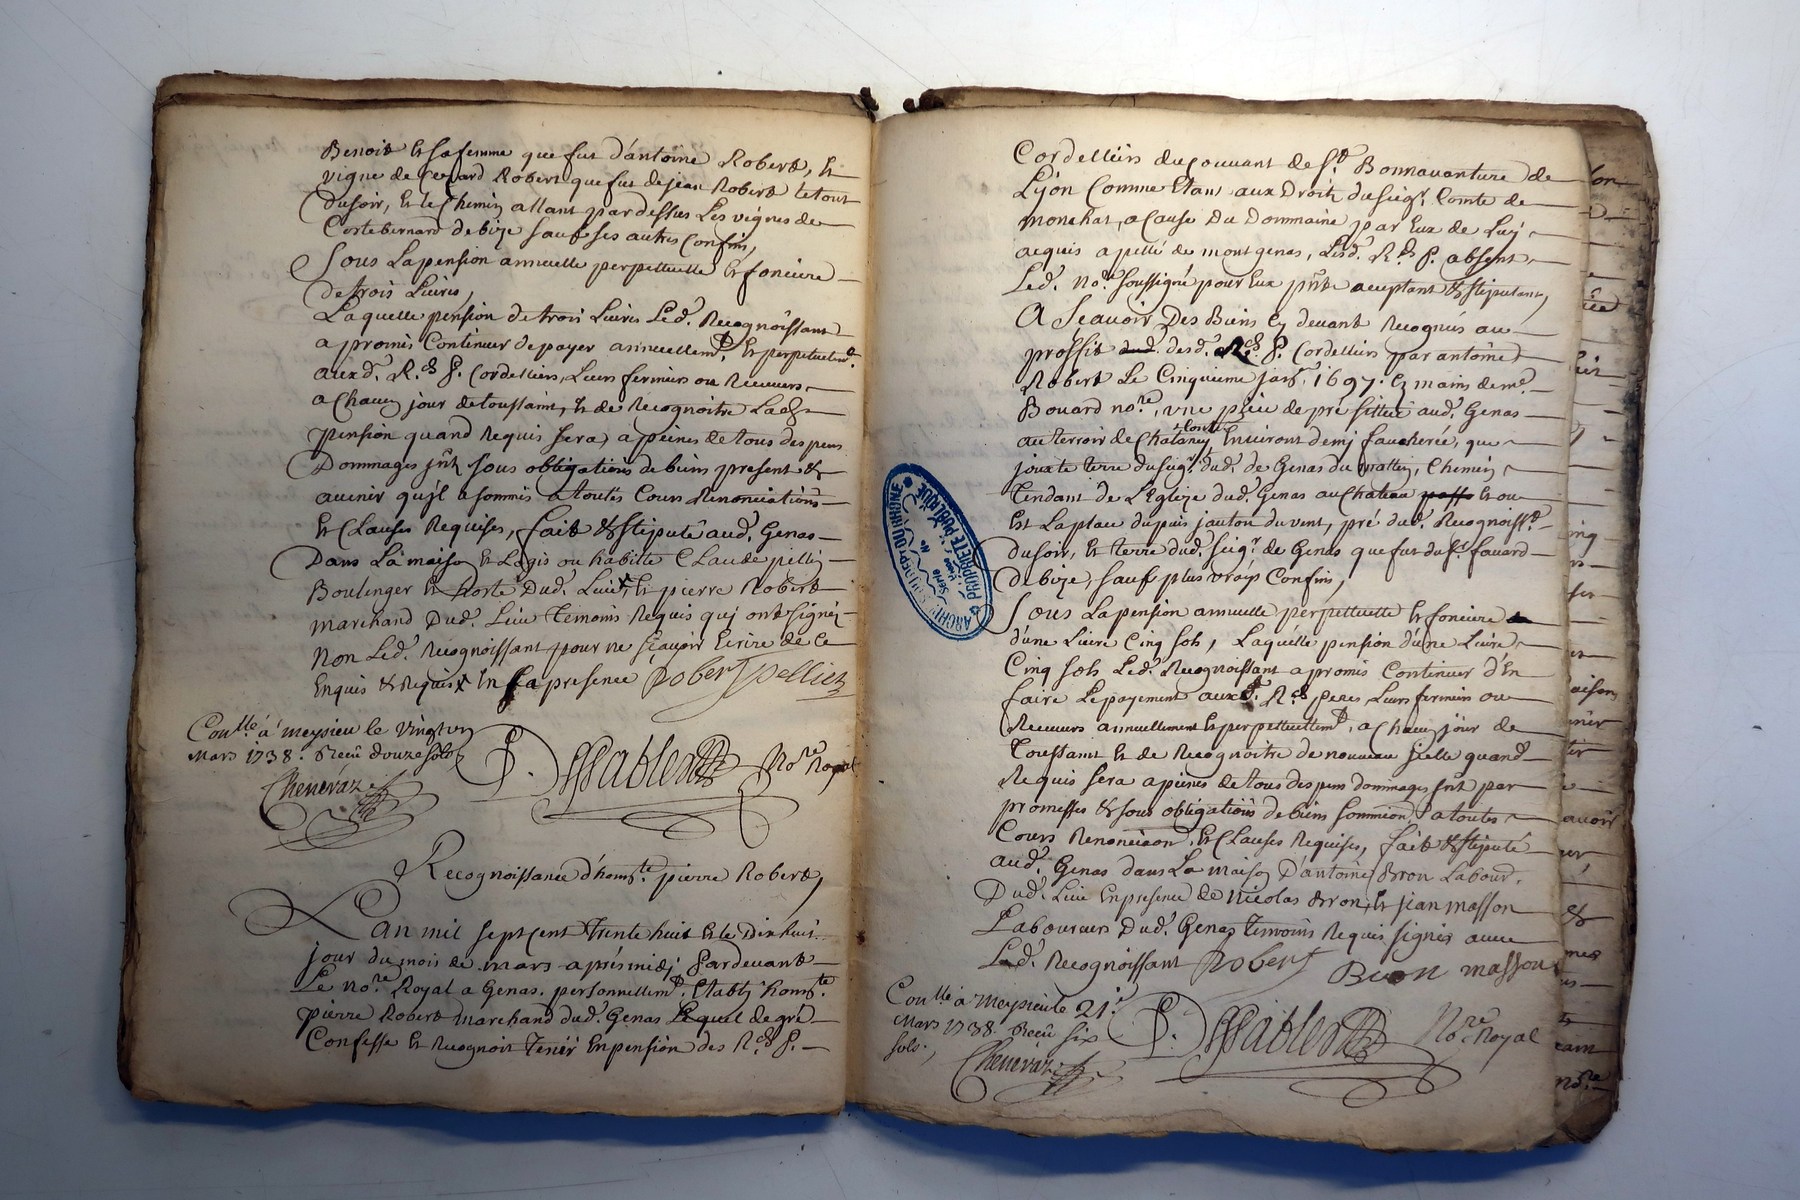 Benoit et sa femme que fut d'antoine Robert, et
vigne de Robert que fut de jean Robert le tout
Du soir, et le Chemin allant par dessus Les vignes de
Coste bernard de bize sauf ses autres Confins,
Sous La pension annuelle perpettuelle et fonciere
de trois Livres,
Laquelle pension de trois Livres Led. Recognoissant
a promis Continuer de payer annuellemt. et perpetuelemt.
auxd. Rds. P. Cordelliers, Leurs fermiers ou Receveurs
a Chacun jour de toussaint, et de Recognoitre Lad.
pension quand Requis sera, a peines de tous despens
Dommages jnts. sous obligations de biens present &
avenir qu'jl a sommis a toutes Cours Renonciations
et Clauses Requises, fait & stipulé aud. Genas
Dans La maison et Logis ou habitte Claude pellin
Boulenger et horte Dud. Lieu, et pierre Robert
marchand Dud. Lieu Temoins Requis quj ont signé
Non Led. Recognoissant pour ne sçavoir Ecrire de Ce
Enquis & Requis En sa presence Robert pellien
Conlle. á meysieu le vingt un
Mars 1738. Reçu douze sols
Chenevaz
Nore. Royal
Recognoissance d'honeste. pierre Robert,
L'an mil sept cent Trente huit et le Dix huit
jour du mois de mars aprés midj Pardevant
Le nore. Royal a Genas. personnellemt. Etablj honeste.
pierre Robert marchand dud. Genas Lequel de gré
Confesse et Recognoit Tenir En pension des Rds. P.
Cordelliers du Couvant de St. Bonnavanture de
Lyon Comme Etant aux Droits du seigr. Comte de
monchat, a Cause Du Dommaine par Eux de Luj
acquis apellé de montgenas, Lesd. Rds. P. absent
Led. nore. soussigné pour Eux pnt. acceptant & stipulant,
A Scavoir Des Biens Cy devant Recognus au
proffit desd. Rds. P. Cordelliers par antoine
Robert Le Cinquieme janr. 1697. Ez mains de me.
Bouard nore., une piece de pré sittué aud. Genas
au terroir de Chatanay Contt. Environt demj faucherée, que
jouxte terre du seigr. dud. de Genas du mattin, Chemin
Tendant de L'Eglize dud. Genas au Chateau et ou
Est La place du puis jauton du vent, pré dud. Recognoisst.
du soir, et terre dud. seigr. de Genas que fut du Sr. favard
de bize, sauf plus vrays Confins,
Sous La pension annuelle perpettuelle et fonciere
d'une Livre Cinq sols, Laquelle pension d'une Livre
Cinq sols Led. Recognoissant a promis Continuer d'En
faire Le payement auxd. Rds. peres Leurs fermiers ou
Receveurs annuellement et perpettuellemt., a Chacun jour de
Toussaint et de Recognoitre de nouveau jcelle quand
Requis sera a peines de tous despens dommages jnt. par
promesses & sous obligations de biens soummission. a toutes
Cours Renonciaon. et Clauses Requises, fait & stipulé
aud. Genas dans La maison D'antoine Bron Labour.
Dud. Lieu En presence de Nicolas Bron, et jean masson
Laboureurs Dud. Genas Temoins Requis signés avec
Led. Recognoissant Robert Bron masson
Conlle. á meysieu le 21e.
Mars 1738. Reçu six
sols.,
Chenevaz
Nore. Royal
ARCHIVES DU DÉPt DU RHÔNE
PROPRIÉTÉ PUBLIQUE
Série
No